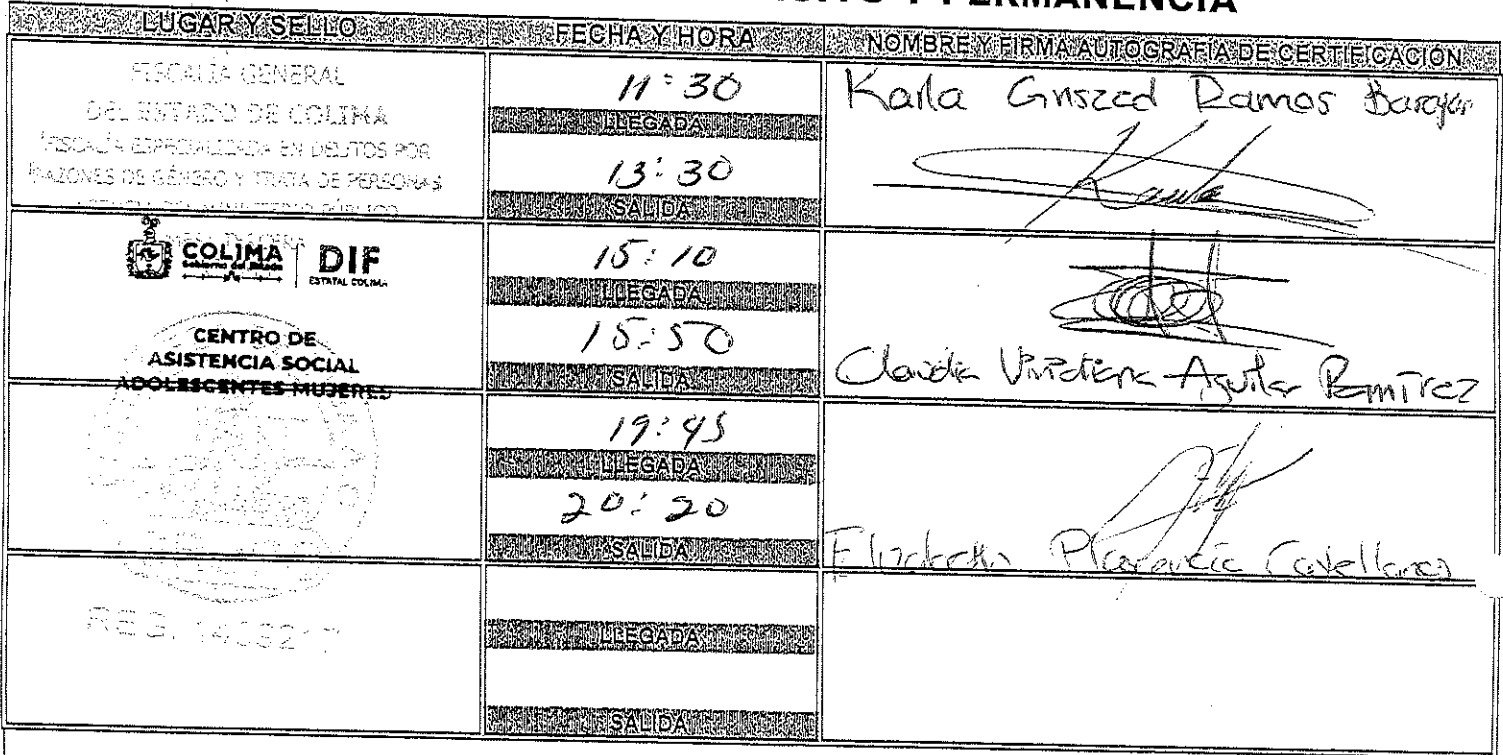 Y PERMANENCIA
LUGAR Y SELLO
FECHA Y HORA
NOMBRE Y FIRMA AUTOGRAFIA DE CERTIFICACIÓN
FISCALÍA GENERAL
DEL ESTADO DE COLIMA
FISCALÍA ESPECIALIZADA EN DELITOS POR
RAZONES DE GÉNERO Y TRATA DE PERSONAS
11:30
LLEGADA
13:30
SALIDA
Karla Griszed Ramos Barajas
Karla
COLIMA
Gobierno del Estado
DIF
ESTATAL COLIMA
CENTRO DE
ASISTENCIA SOCIAL
ADOLESCENTES MUJERES
15:10
LLEGADA
15:50
SALIDA
Claudia Viridiana Aguilar Ramírez
19:45
LLEGADA
20:20
SALIDA
Elizabeth Plasencia
REG.
LLEGADA
SALIDA